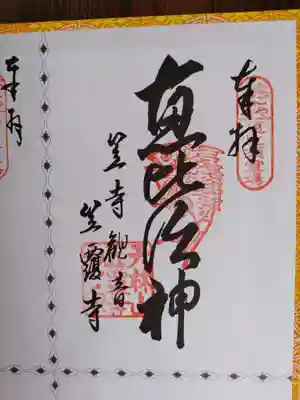 奉拝
恵比須神
笠寺観音
笠覆寺
奉拝